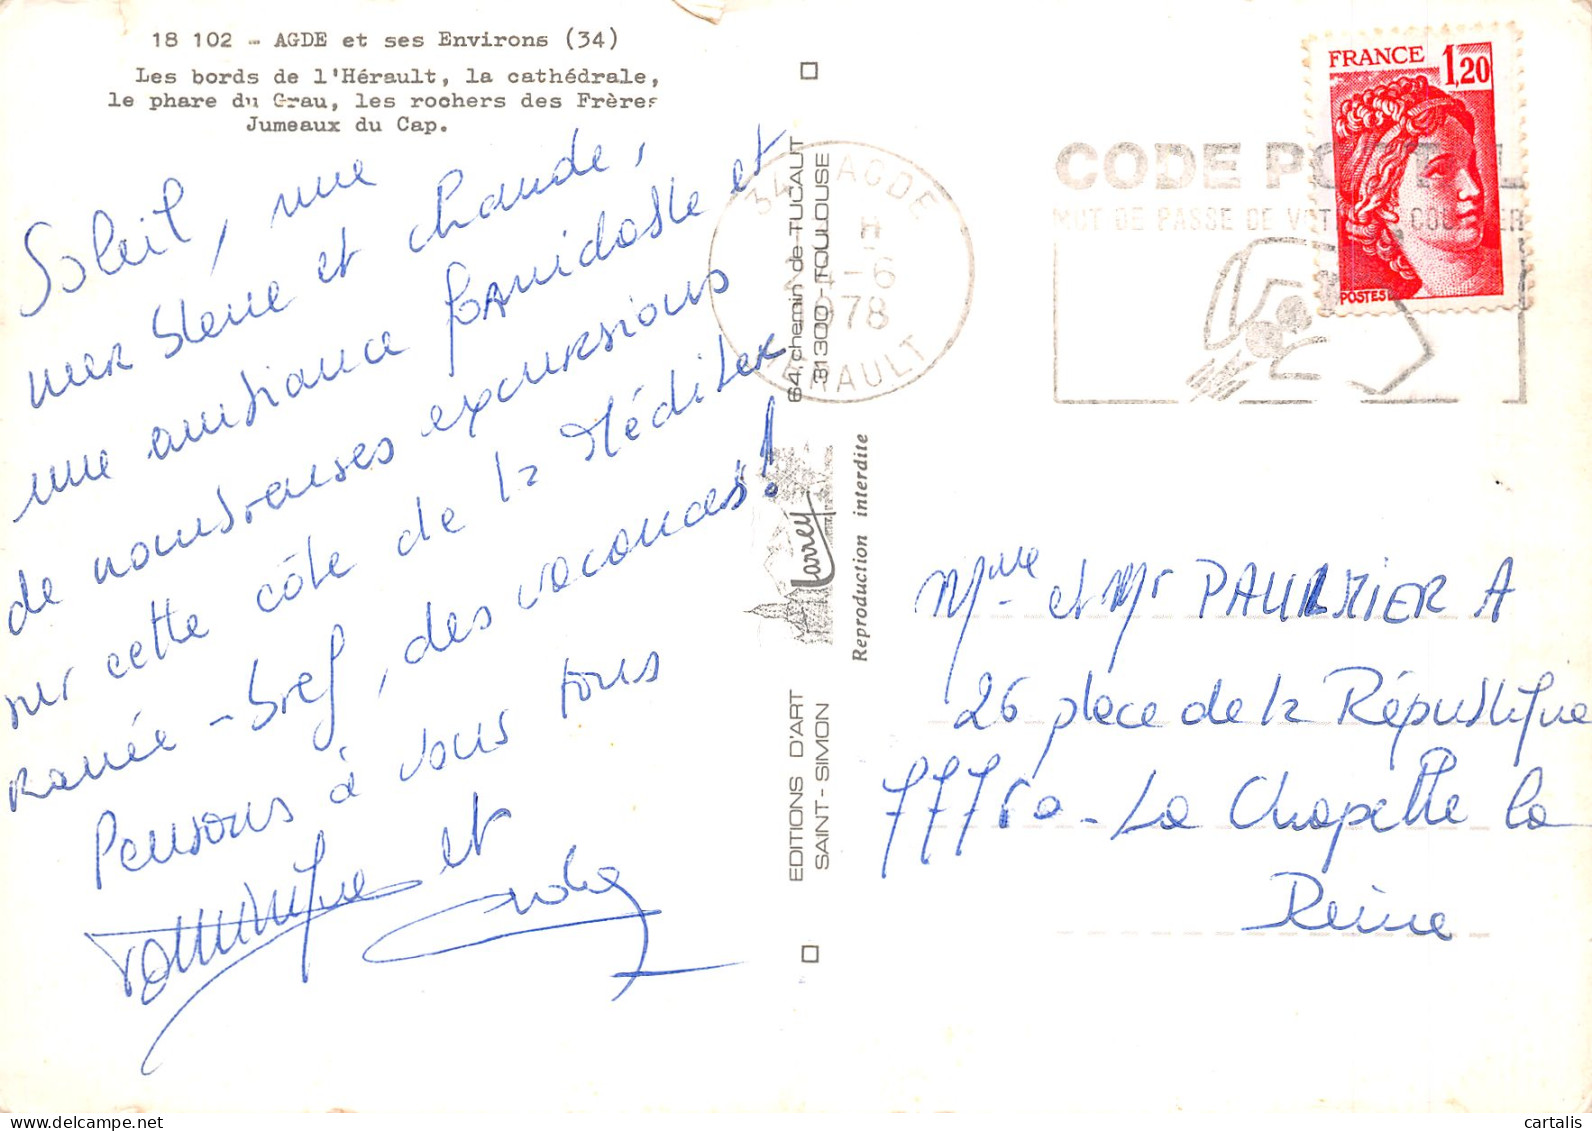 18 102 - AGDE et ses Environs (34)
Les bords de l'Hérault, la cathédrale,
le phare du Grau, les rochers des Frères
Jumeaux du Cap.
Soleil, une
mer bleue et chaude,
une ambiance formidable et
de nombreuses excursions
sur cette côte de la Méditer
ranée - bref, des vacances !
Pensons à vous tous
Dominique et
EDITIONS D'ART
SAINT-SIMON
64, chemin de TUCAUT
31300-TOULOUSE
Larrey
Reproduction interdite
34 AGDE
H
-6
1978
HERAULT
CODE POSTAL
MOT DE PASSE DE VOTRE COURRIER
FRANCE 1,20
POSTES
Mme et Mr PAULMIER A
26 place de la République
77760 - La Chapelle la
Reine
cartalis
www.delcampe.net